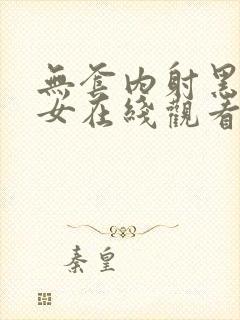 無套内射黑
女在綫觀看
秦皇